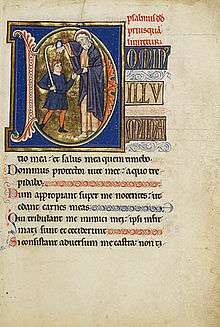 psalmus dd
priusquā
liniretur:
D OMIN
ILLV
MINA
tio mea· et salus mea quem timebo
Dominus protector vite mee· a quo tre
pidabo·
Dum appropiant super me nocentes· ut
edant carnes meas·
Qui tribulant me inimici mei· ipsi infir
mati sunt et ceciderunt
Si consistant adversum me castra non ti